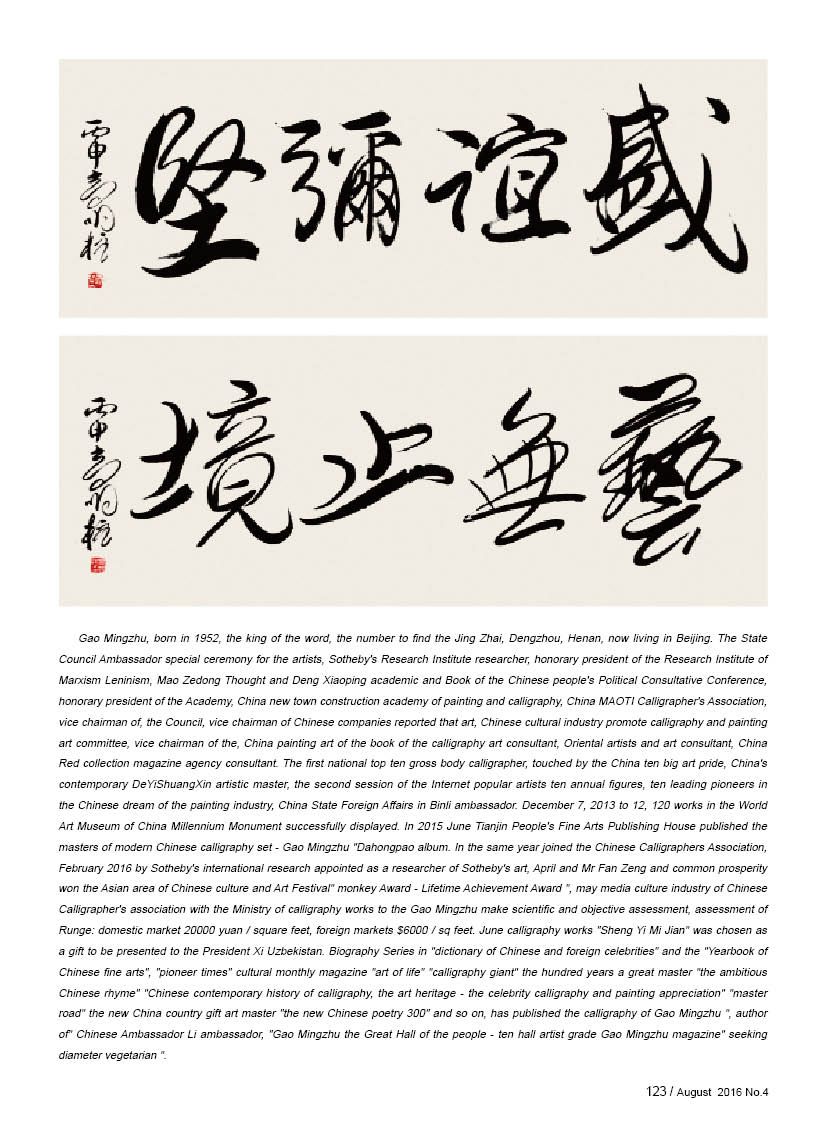 盛誼彌堅
丙申高明柱
藝無止境
丙申高明柱
Gao Mingzhu, born in 1952, the king of the word, the number to find the Jing Zhai, Dengzhou, Henan, now living in Beijing. The State
Council Ambassador special ceremony for the artists, Sotheby's Research Institute researcher, honorary president of the Research Institute of
Marxism Leninism, Mao Zedong Thought and Deng Xiaoping academic and Book of the Chinese people's Political Consultative Conference,
honorary president of the Academy, China new town construction academy of painting and calligraphy, China MAOTI Calligrapher's Association,
vice chairman of, the Council, vice chairman of Chinese companies reported that art, Chinese cultural industry promote calligraphy and painting
art committee, vice chairman of the, China painting art of the book of the calligraphy art consultant, Oriental artists and art consultant, China
Red collection magazine agency consultant. The first national top ten gross body calligrapher, touched by the China ten big art pride, China's
contemporary DeYiShuangXin artistic master, the second session of the Internet popular artists ten annual figures, ten leading pioneers in
the Chinese dream of the painting industry, China State Foreign Affairs in Binli ambassador. December 7, 2013 to 12, 120 works in the World
Art Museum of China Millennium Monument successfully displayed. In 2015 June Tianjin People's Fine Arts Publishing House published the
masters of modern Chinese calligraphy set - Gao Mingzhu "Dahongpao album. In the same year joined the Chinese Calligraphers Association,
February 2016 by Sotheby's international research appointed as a researcher of Sotheby's art, April and Mr Fan Zeng and common prosperity
won the Asian area of Chinese culture and Art Festival" monkey Award - Lifetime Achievement Award ", may media culture industry of Chinese
Calligrapher's association with the Ministry of calligraphy works to the Gao Mingzhu make scientific and objective assessment, assessment of
Runge: domestic market 20000 yuan / square feet, foreign markets $6000 / sq feet. June calligraphy works "Sheng Yi Mi Jian" was chosen as
a gift to be presented to the President Xi Uzbekistan. Biography Series in "dictionary of Chinese and foreign celebrities" and the "Yearbook of
Chinese fine arts", "pioneer times" cultural monthly magazine "art of life" "calligraphy giant" the hundred years a great master "the ambitious
Chinese rhyme" "Chinese contemporary history of calligraphy, the art heritage - the celebrity calligraphy and painting appreciation" "master
road" the new China country gift art master "the new Chinese poetry 300" and so on, has published the calligraphy of Gao Mingzhu ", author
of" Chinese Ambassador Li ambassador, "Gao Mingzhu the Great Hall of the people - ten hall artist grade Gao Mingzhu magazine" seeking
diameter vegetarian ".
123 / August 2016 No.4